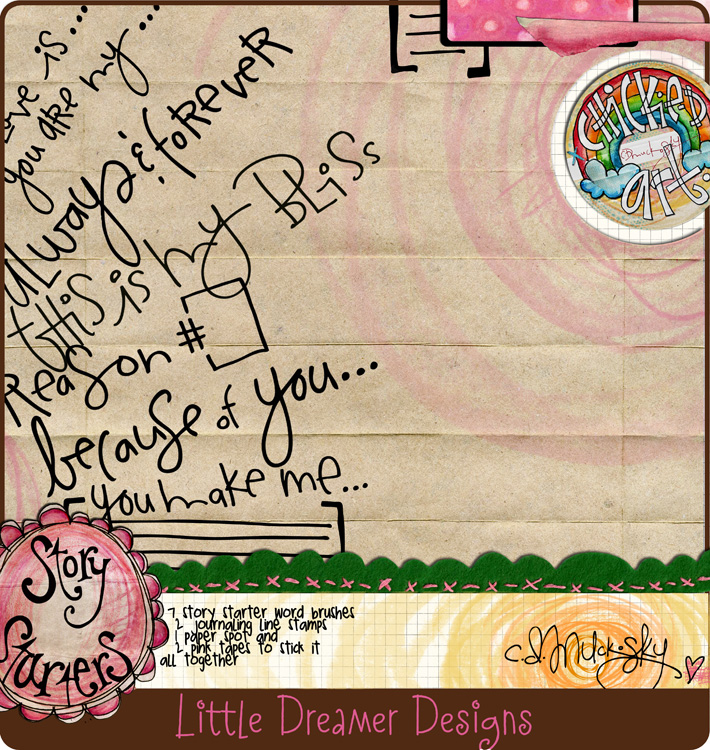 Love is...
you are my...
always & forever
this is my BLiSs
Reason #
because of you...
you make me...
CHiCKiEs
cdmuckosky
art.
Story
Starters
7 story starter word brushes
2 journaling line stamps
1 paper spot and
2 pink tapes to stick it
all together
c.d.Muckosky
Little Dreamer Designs